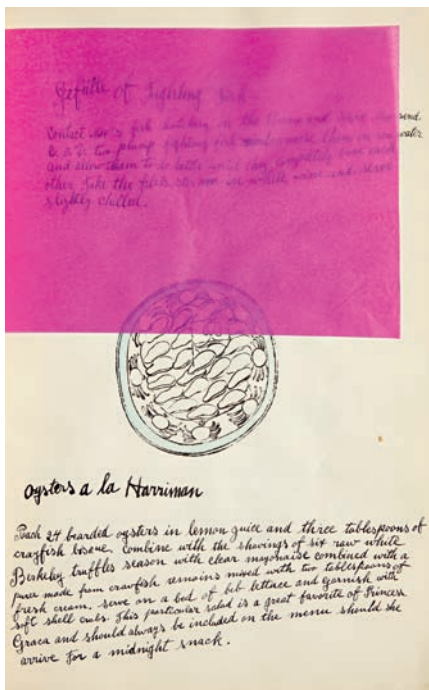 Gefilte of Fighting Fish
Contact fish hatchery in the and have them send
two plump fighting fish them in water
and allow them to do battle until they completely bone each
other. Take the filets in white wine and serve
slightly chilled.
oysters a la Harriman
Poach 24 bearded oysters in lemon guice and three tablespoons of
crayfish bisque. Combine with the shavings of six raw white
Berkeley truffles season with clear mayonaise combined with a
puree made from crawfish remains mixed with two tablespoons of
fresh cream. serve on a bed of bib lettuce and garnish with
soft shell crabs. This particular salad is a great favorite of Princess
Graca and should always be included on the menu should she
arrive for a midnight snack.